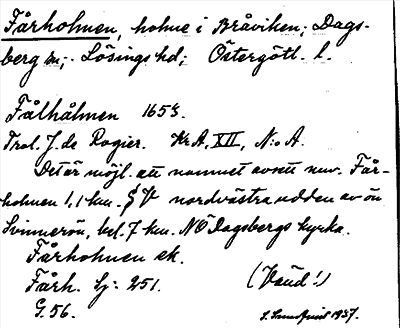 Fårholmen, holme i Bråviken; Dags-
berg sn; Lösings hd; Östergötl. l.
Fålhålmen 1653.
Trol. J. de Rogier. KrA, XII, N:o A.
Det är möjl. att namnet avsett nuv. Får-
holmen 1,1 km. § V nordvästra udden av ön
Svinnerön, bel. 7 km. NO Dagsbergs kyrka.
Fårholmen ek.
Fårh. Sj: 251. (Vaud!)
G. 56. 1937.